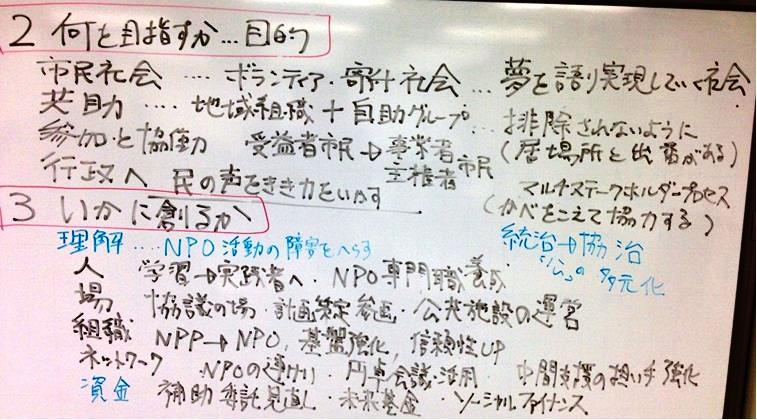 2 何を目指すか…目的
市民社会 ‥‥ ボランティア・寄付社会 … 夢を語り実現していく社会
共助 ‥‥ 地域組織+自助グループ … 排除されないように
(居場所と出番がある)
参加と協働 受益者市民→事業者 主権者 市民
行政へ 民の声をきき力をいかす
マルチステークホルダープロセス
(かべをこえて協力する)
3 いかに創るか
理解 ‥‥ NPO活動の障害をへらす
統治→協治
の多元化
人 学習→実践者へ・NPO専門職養成
場 協議の場・計画策定参画・公共施設の運営
組織 NPP→NPO, 基盤強化, 信頼性UP
ネットワーク NPOの・円卓会議・活用・中間支援の担い手強化
資金 補助委託見直し・未来基金・ソーシャルファイナンス